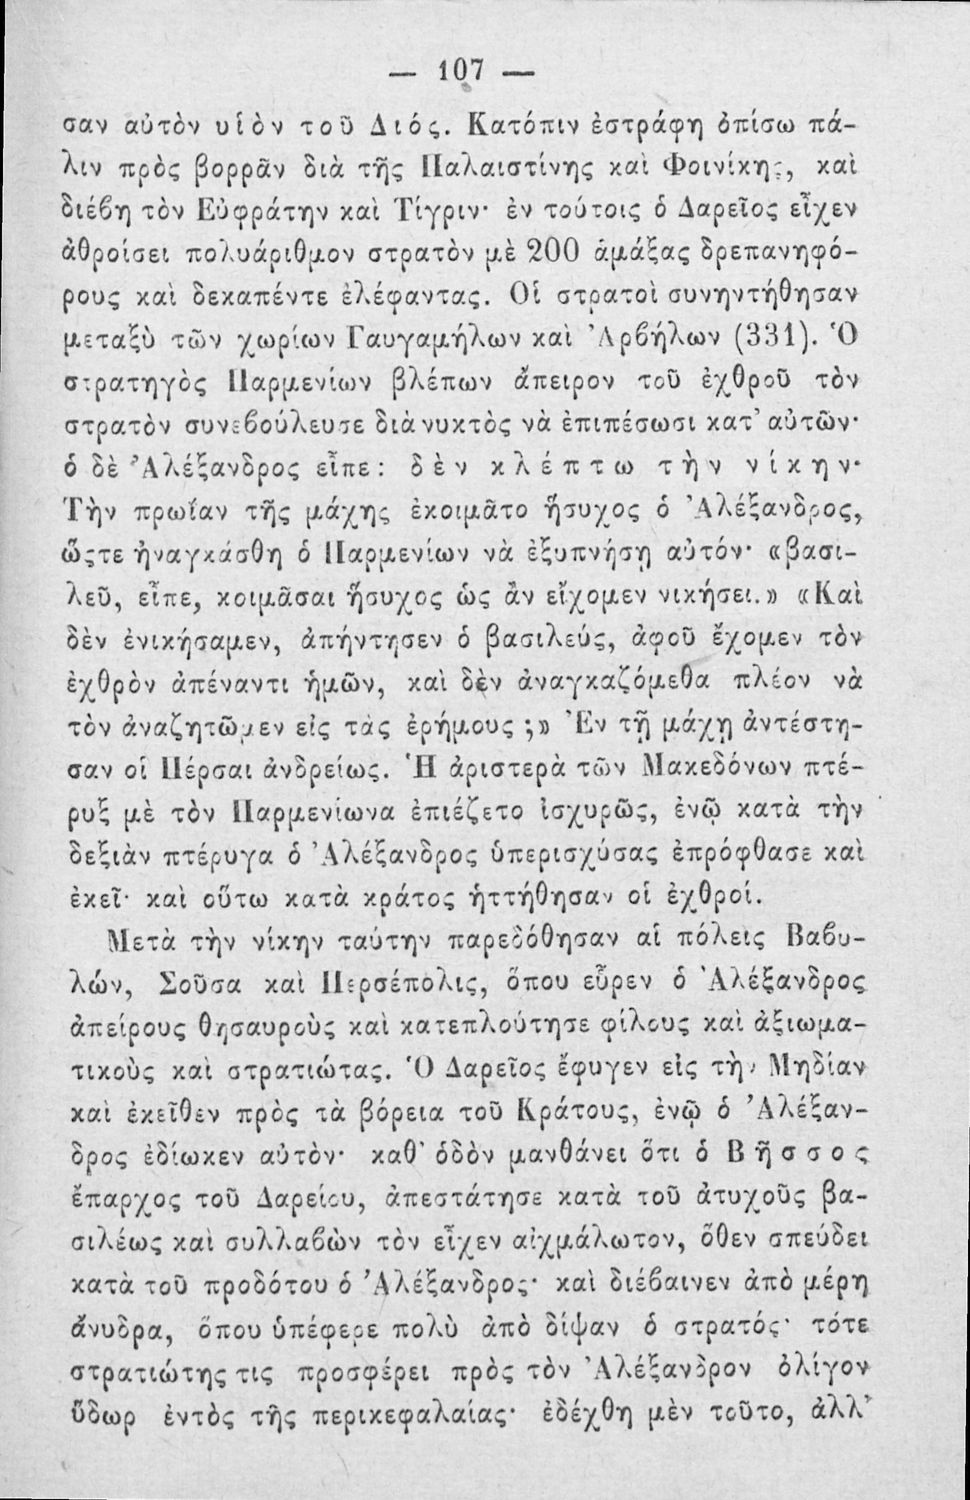 — 107 —
σαν αὐτὸν υἱὸν τοῦ Διός. Κατόπιν ἐστράφη ὀπίσω πά-
λιν πρὸς βορρᾶν διὰ τῆς Παλαιστίνης καὶ Φοινίκης, καὶ
διέβη τὸν Εὐφράτην καὶ Τίγριν· ἐν τούτοις ὁ Δαρεῖος εἶχεν
ἀθροίσει πολυάριθμον στρατὸν μὲ 200 ἁμάξας δρεπανηφό-
ρους καὶ δεκαπέντε ἐλέφαντας. Οἱ στρατοὶ συνηντήθησαν
μεταξὺ τῶν χωρίων Γαυγαμήλων καὶ Ἀρβήλων (331). Ὁ
στρατηγὸς Παρμενίων βλέπων ἄπειρον τοῦ ἐχθροῦ τὸν
στρατὸν συνεβούλευσε διὰ νυκτὸς νὰ ἐπιπέσωσι κατ' αὐτῶν·
ὁ δὲ Ἀλέξανδρος εἶπε: δὲν κλέπτω τὴν νίκην·
Τὴν πρωΐαν τῆς μάχης ἐκοιμᾶτο ἥσυχος ὁ Ἀλέξανδρος,
ὥςτε ἠναγκάσθη ὁ Παρμενίων νὰ ἐξυπνήσῃ αὐτόν· «βασι-
λεῦ, εἶπε, κοιμᾶσαι ἥσυχος ὡς ἂν εἴχομεν νικήσει.» «Καὶ
δὲν ἐνικήσαμεν, ἀπήντησεν ὁ βασιλεύς, ἀφοῦ ἔχομεν τὸν
ἐχθρὸν ἀπέναντι ἡμῶν, καὶ δὲν ἀναγκαζόμεθα πλέον νὰ
τὸν ἀναζητῶμεν εἰς τὰς ἐρήμους ;» Ἐν τῇ μάχῃ ἀντέστη-
σαν οἱ Πέρσαι ἀνδρείως. Ἡ ἀριστερὰ τῶν Μακεδόνων πτέ-
ρυξ μὲ τὸν Παρμενίωνα ἐπιέζετο ἰσχυρῶς, ἐνῷ κατὰ τὴν
δεξιὰν πτέρυγα ὁ Ἀλέξανδρος ὑπερισχύσας ἐπρόφθασε καὶ
ἐκεῖ· καὶ οὕτω κατὰ κράτος ἡττήθησαν οἱ ἐχθροί.
Μετὰ τὴν νίκην ταύτην παρεδόθησαν αἱ πόλεις Βαβυ-
λών, Σοῦσα καὶ Περσέπολις, ὅπου εὗρεν ὁ Ἀλέξανδρος
ἀπείρους θησαυροὺς καὶ κατεπλούτησε φίλους καὶ ἀξιωμα-
τικοὺς καὶ στρατιώτας. Ὁ Δαρεῖος ἔφυγεν εἰς τὴν Μηδίαν
καὶ ἐκεῖθεν πρὸς τὰ βόρεια τοῦ Κράτους, ἐνῷ ὁ Ἀλέξαν-
δρος ἐδίωκεν αὐτόν· καθ' ὁδὸν μανθάνει ὅτι ὁ Βῆσσος
ἔπαρχος τοῦ Δαρείου, ἀπεστάτησε κατὰ τοῦ ἀτυχοῦς βα-
σιλέως καὶ συλλαβὼν τὸν εἶχεν αἰχμάλωτον, ὅθεν σπεύδει
κατὰ τοῦ προδότου ὁ Ἀλέξανδρος· καὶ διέβαινεν ἀπὸ μέρη
ἄνυδρα, ὅπου ὑπέφερε πολὺ ἀπὸ δίψαν ὁ στρατός· τότε
στρατιώτης τις προσφέρει πρὸς τὸν Ἀλέξανδρον ὀλίγον
ὕδωρ ἐντὸς τῆς περικεφαλαίας· ἐδέχθη μὲν τοῦτο, ἀλλ'